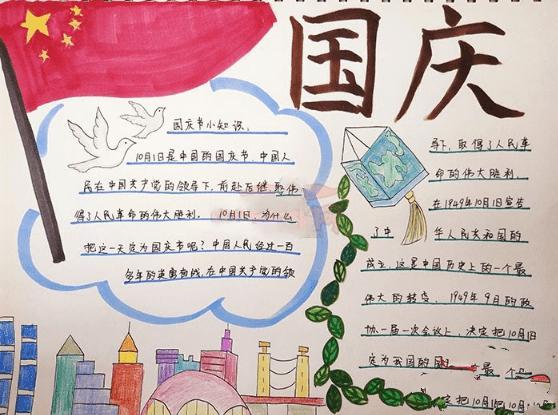 国庆
国庆节小知识.
10月1日是中国的国庆节.中国人
民在中国共产党的领导下,前赴后继
得了人民革命的伟大胜利. 10月1日,为什么
把这一天定为国庆节呢?中国人民经过一百
多年的英勇奋战,在中国共产党的领
导下,取得了人民革
命的伟大胜利.
在1949年10月1日宣告
了中 华人民共和国的
成立,这是中国历史上的一个最
伟大的转变. 1949年9月的政
协一届一次会议上,决定把10月1日
定为我国的国 最
定把10月1把10月